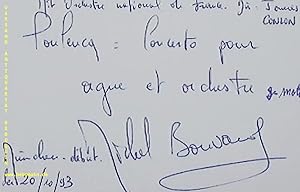 Orchestre national de France. Dir: James
CONLON
Poulencq = Concerto pour
orgue et orchestre
München - début. Michel Bouvard
le 20/10/93